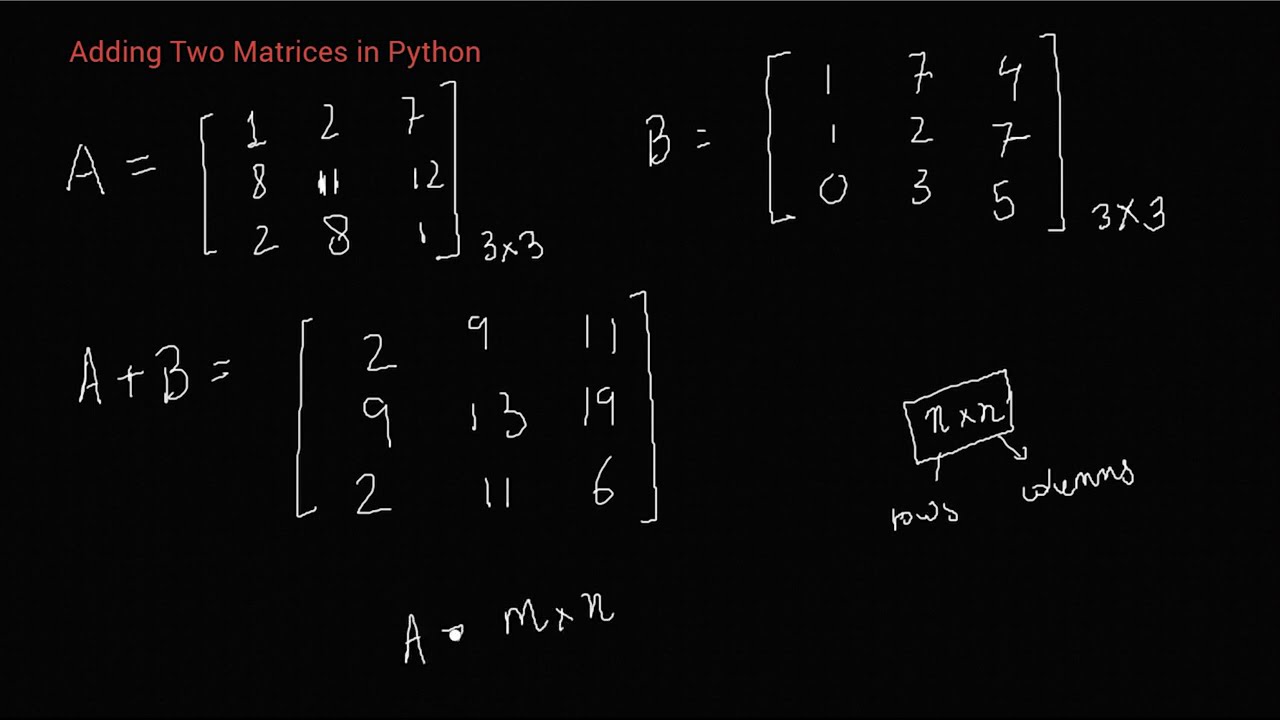 Adding Two Matrices in Python
A = [ 1 2 7
8 11 12
2 8 1 ] 3×3
B = [ 1 7 4
1 2 7
0 3 5 ] 3×3
A + B = [ 2 9 11
9 13 19
2 11 6 ]
n × n
rows columns
A - m × n